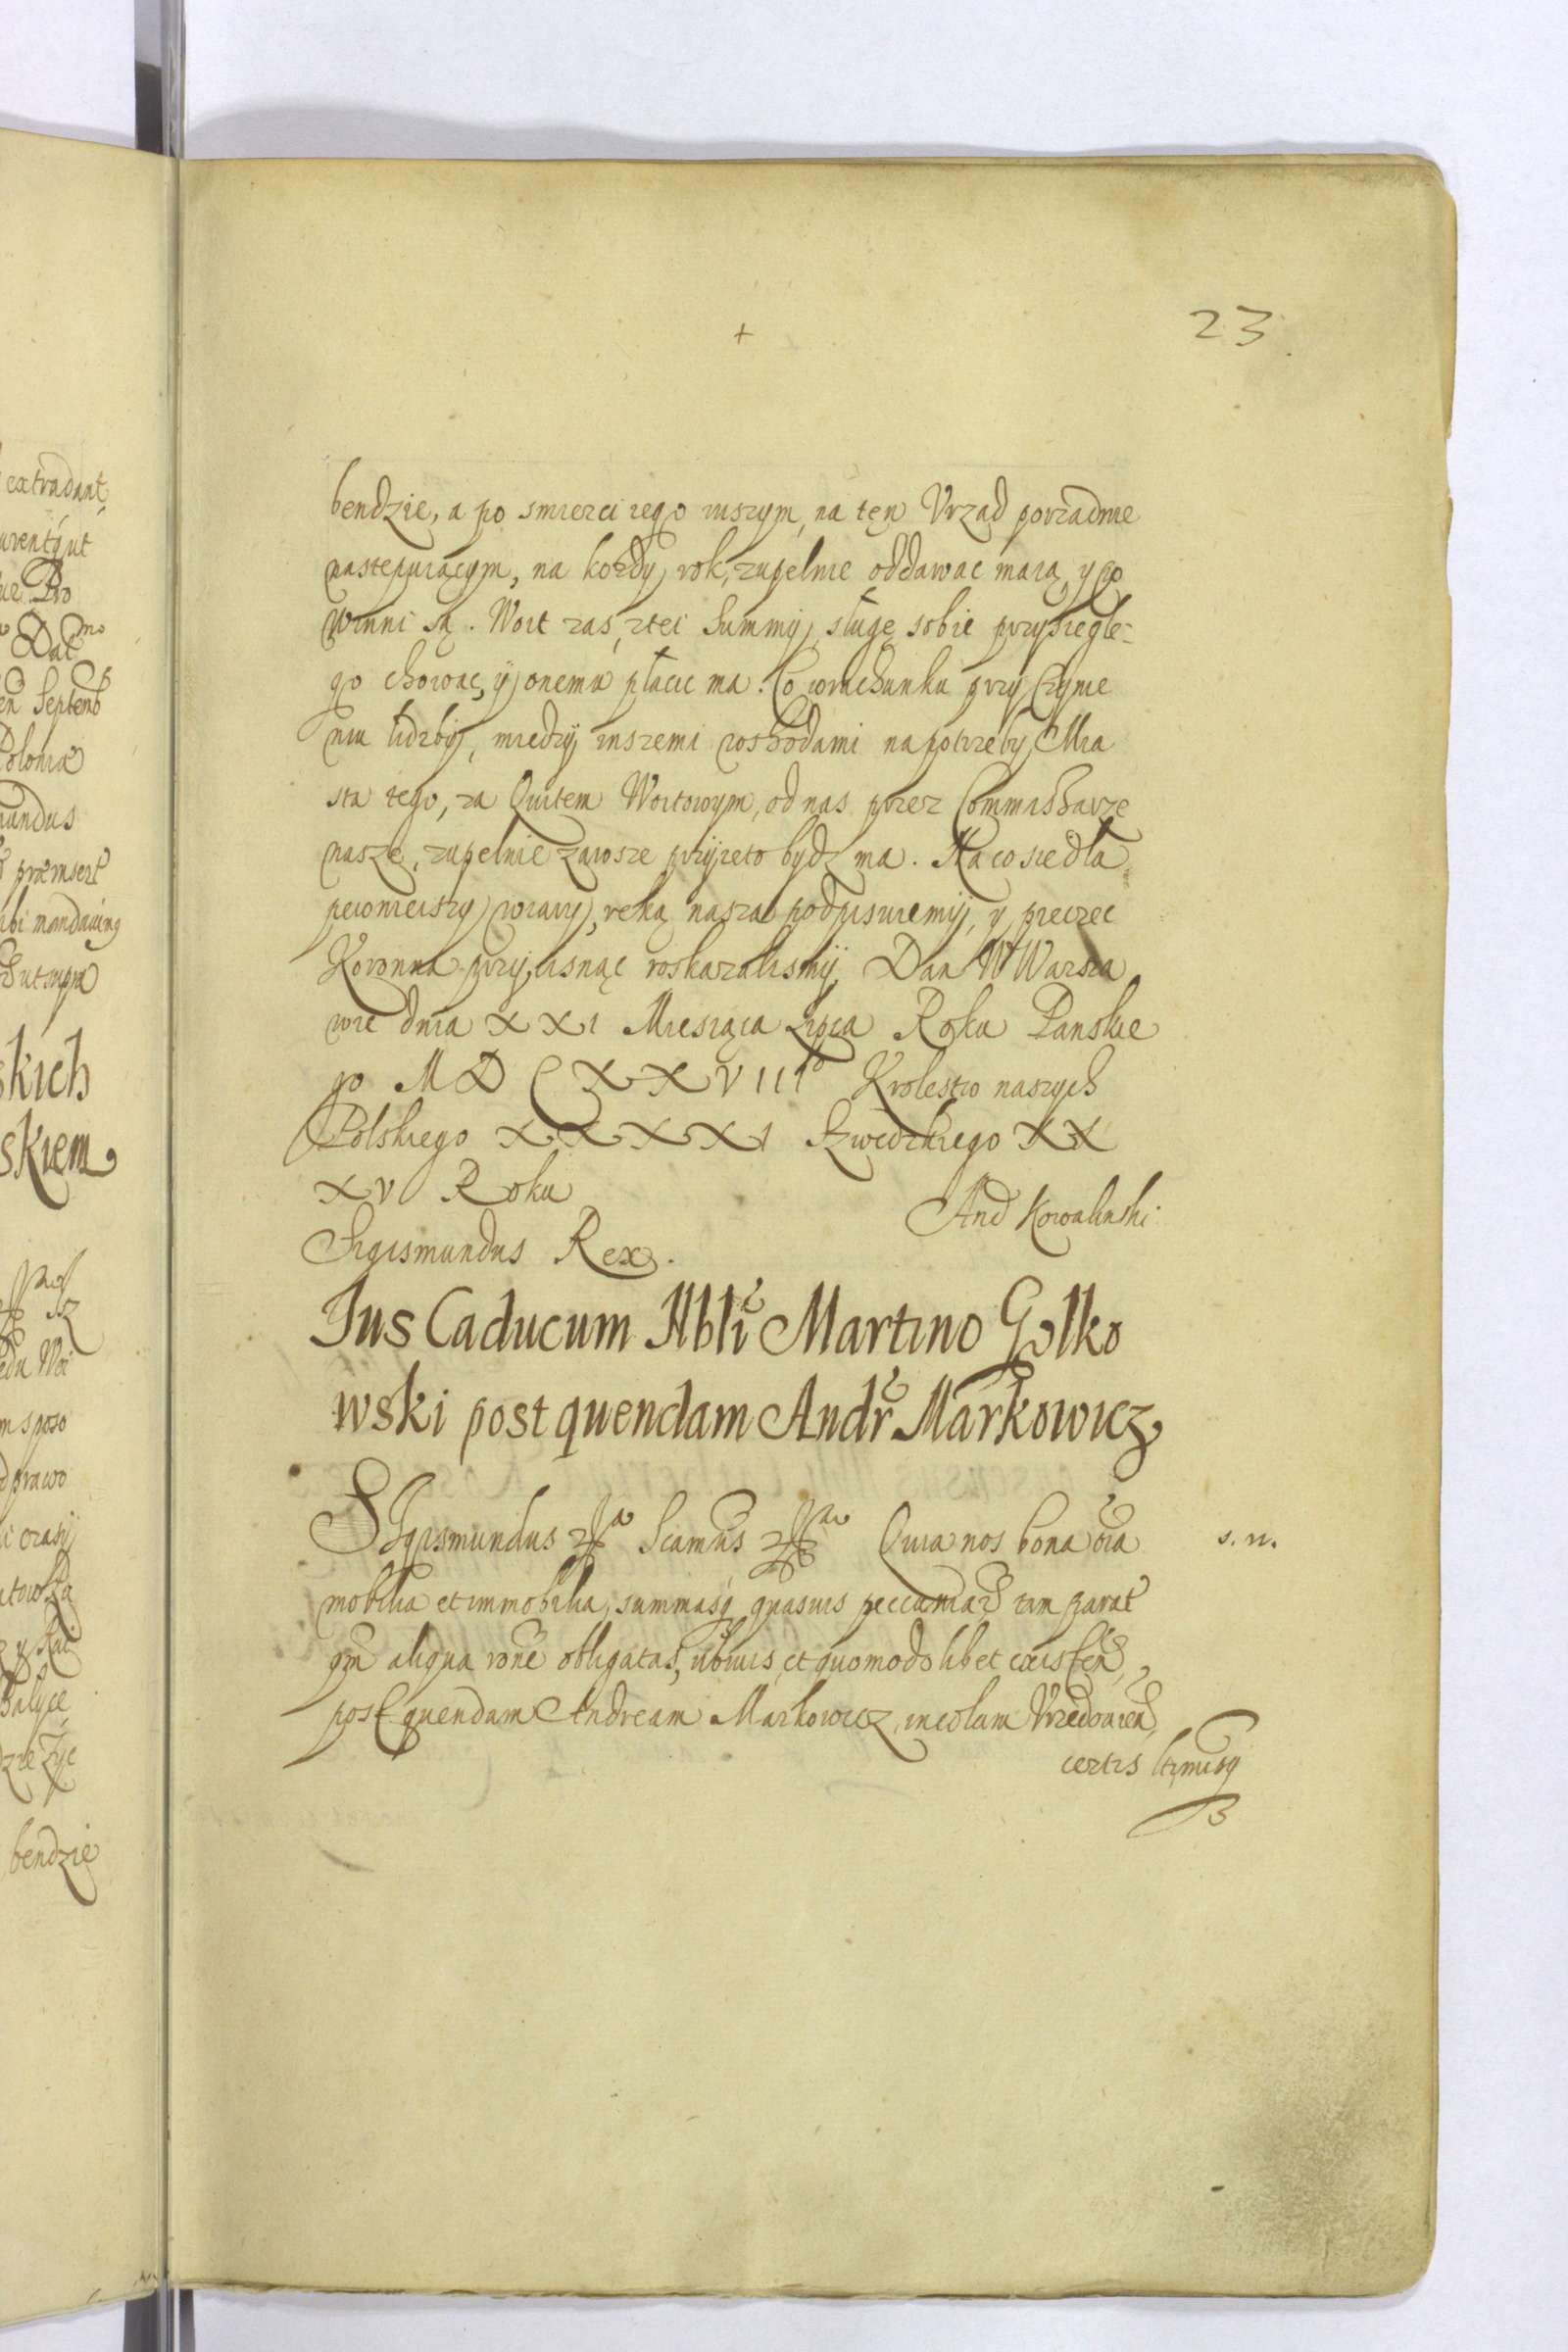 extradant
ut
Pro
Dat
Septenb
Poloniæ
præmsert
skich
skiem
sposo
prawo
bendzie
+
23
bendzie, a po smierci iego inszym, na ten Vrząd porządnie
nastepuiącym, na kożdy rok, zupelnie oddawac maią, y po
winni są. Woit zas, ztei Summy, sługę sobie przysięgłe-
go chowac, ÿ onemu płacic ma. Co wrachunku przy Czynie
niu lidzby, miedzÿ inszemi roshodami na potrzeby Mia
sta tego, za Quitem Woitowym, od nas przez Commissarze
nasze, zupelnie zawsze przyieto bydz ma. Na co sie dla
pewnieiszy wiary, ręką naszą podpisuiemÿ, y pieczęc
Koronną przycisnąc roskazalismÿ. Dan W Warsza
wie dnia XXI Miesiąca Lipca Roku Panskie
go MDCXXVIIIº Krolestw naszych
Polskiego XXXXI Szwedzkiego XX
XV Roku
And Kowalinski
Sigismundus Rex.
Jus Caducum Nbli Martino Golko
wski post quendam Andr Markowicz
SIgismundus Scamus Quia nos bona oia
s. n.
mobilia et immobilia, summasq quasuis peccuniar tam parat
qm aliqua rone obligatas, ubiuis et quomodolibet existen,
post quendam Andream Markowicz, incolam Vrzedouien,
certis ltimisq